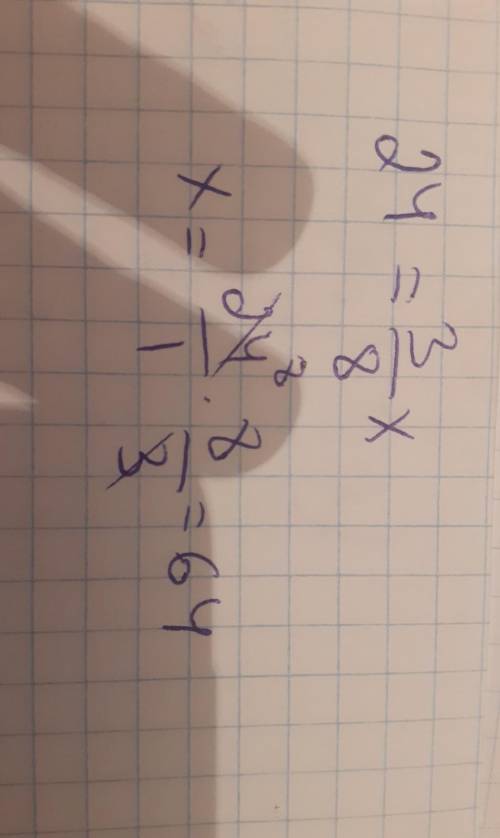 24 = 3/8 x
x = 24⁸/1 · 8/3 = 64